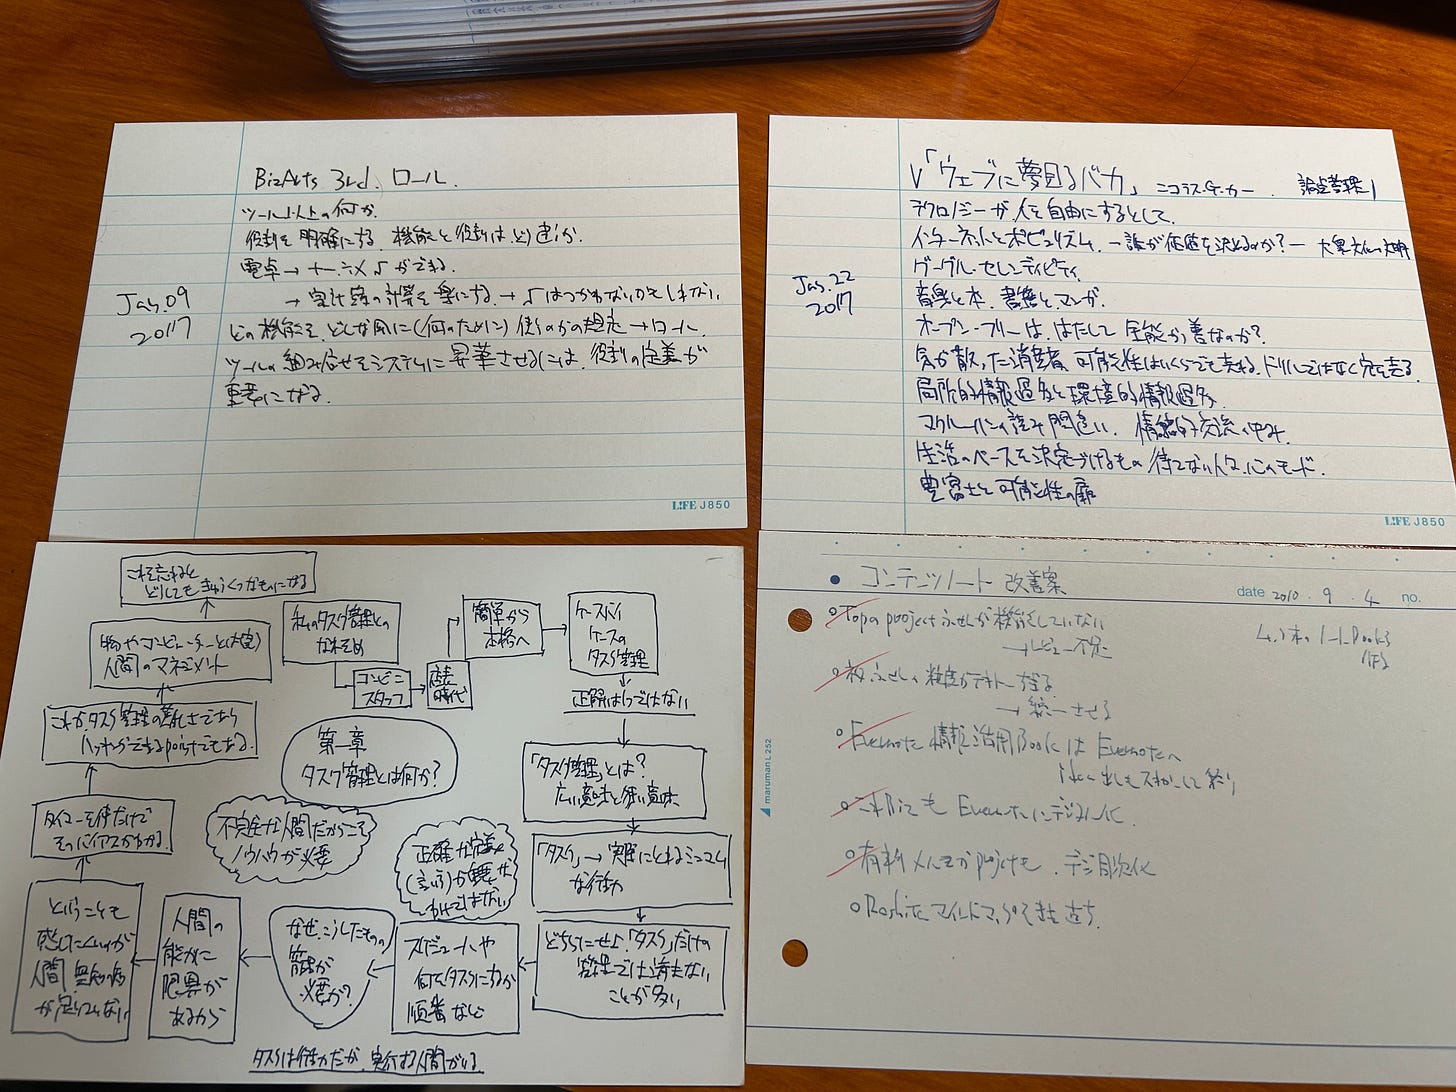 BizArts 3rd. ロール.
ツール以上の何か.
役割を明確にする. 機能と役割はどう違うか.
電卓→ +-÷× √ ができる.
→ 家計簿の計算を楽にする. → √はつかわないかもしれない.
どの機能を、どんな風に(何のために)使うのかの規定→ロール.
ツールの組み合せをシステムに昇華させるには、役割の定義が
重要になる.
Jan. 09
2017
LIFE J850
「ウェブに夢見るバカ」 ニコラス・G・カー. 論点整理1
テクノロジーが人を自由にするとして、
インターネットとポピュリズム. ー誰が価値を決めるのか?ー
グーグル・セレンディピティ.
音楽と本. 書籍とマンガ.
オープン・フリーは、はたして 全能か善なのか?
気が散った消費者. 可能性はいくらでも売れる. ドリルではなく穴を売る.
局所的情報過多と環境的情報過多.
マクルーハンの読み間違い.
生活のペースを決定づけるもの 待てない人々. 心のモード.
豊富さと可能性の扉
Jan. 22
2017
LIFE J850
これを忘れると
どうしてもきゅうくつなものになる
人間のマネジメント
これがタスク管理の
ハッキングできるpointでもある.
タイマーを使だけで
そのバイアスがわかる.
ということも
感じにくいのが
人間
人間の
能力に
限界が
あるから
なぜ、こうしたものの
管理が
必要か?
スケジュールや
何をタスクにするか
順番など
どちらにせよ「タスク」だけの
管理では済まない
ことが多い
「タスク」→ 実際にとれるミニマム
な行動
「タスク管理」とは?
広い意味と狭い意味
正解は1つではない
ケースバイ
ケースの
タスク管理
簡単から
本格へ
時代
コンビニ
スタッフ
私のタスク管理との
なれそめ
第一章
タスク管理とは何か?
不完全な人間だからこそ
ノウハウが必要
正確な定義
(言い方)が重要な
わけではない
タスクは行動だが、実行する人間がいる
• コンテンツノート 改善案
date 2010. 9. 4 no.
○Topの projectふせんが機能していない
→レビュー不足
→ 統一させる
○Evernote 情報活用BookはEvernoteへ
Evernoteにデジタル化.
○有料メルマガprojectも. デジタル化
maruman L252